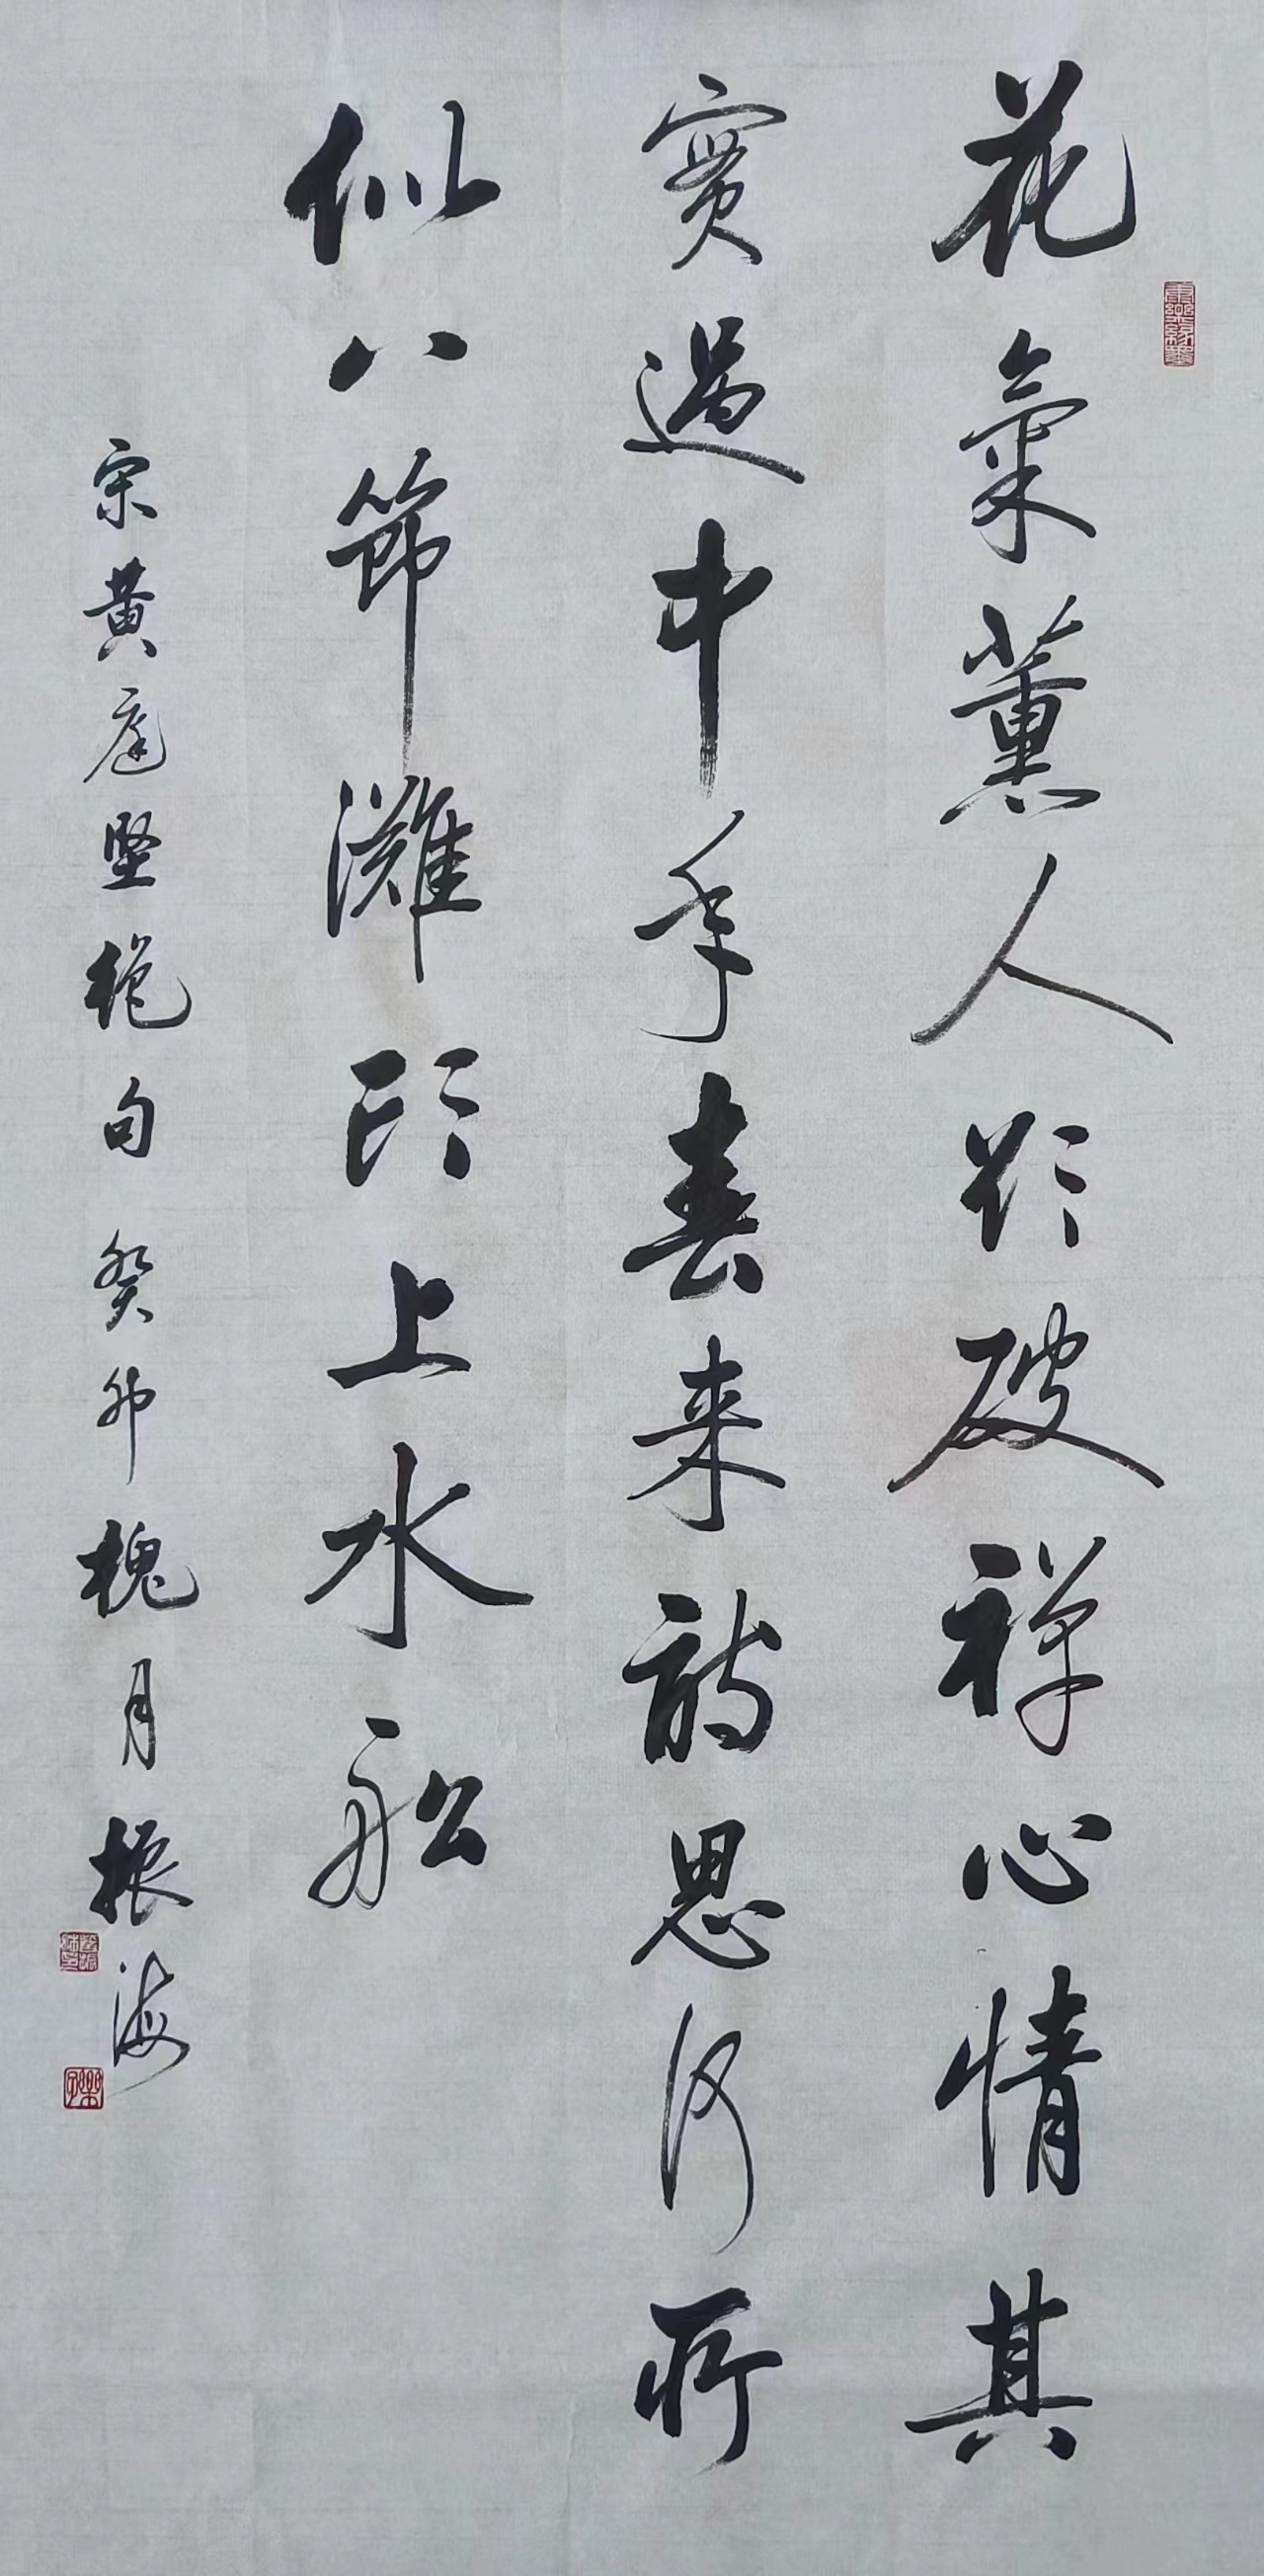 花氣薰人欲破禅心情其
實過中年春来詩思何所
似八節灘頭上水船
宋黄庭堅絕句癸卯槐月振海